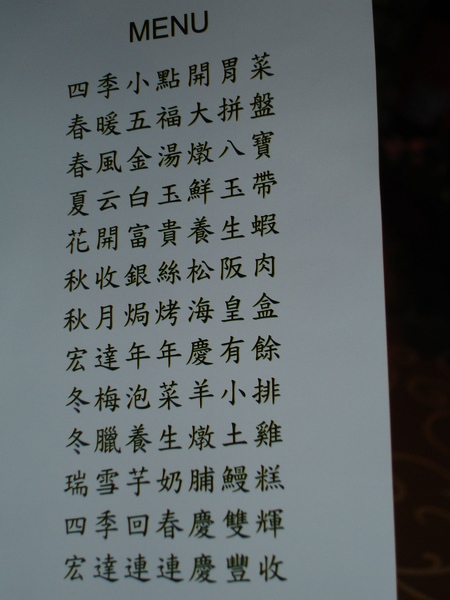 MENU
四季小點開胃菜
春暖五福大拼盤
春風金湯燉八寶
夏云白玉鮮玉帶
花開富貴養生蝦
秋收銀絲松阪肉
秋月焗烤海皇盒
宏達年年慶有餘
冬梅泡菜羊小排
冬臘養生燉土雞
瑞雪芋奶脯鰻糕
四季回春慶雙輝
宏達連連慶豐收